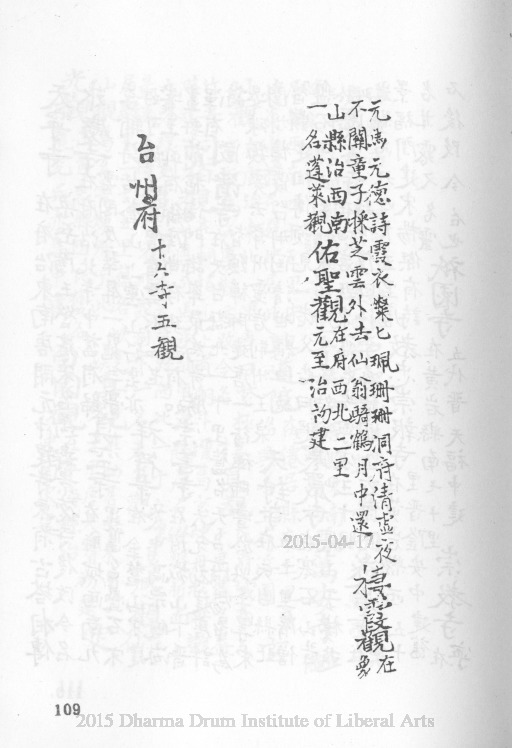 元馬元德詩霞衣縈匕珮珊珊洞府清虛夜
不關童子採芝雲外去仙翁騎鶴月中還棲霞觀在象
山縣治西南佑聖觀在府西北二里
一名蓬萊觀元至治初建
台州府十六寺五觀
2015-04-17
109
2015 Dharma Drum Institute of Liberal Arts